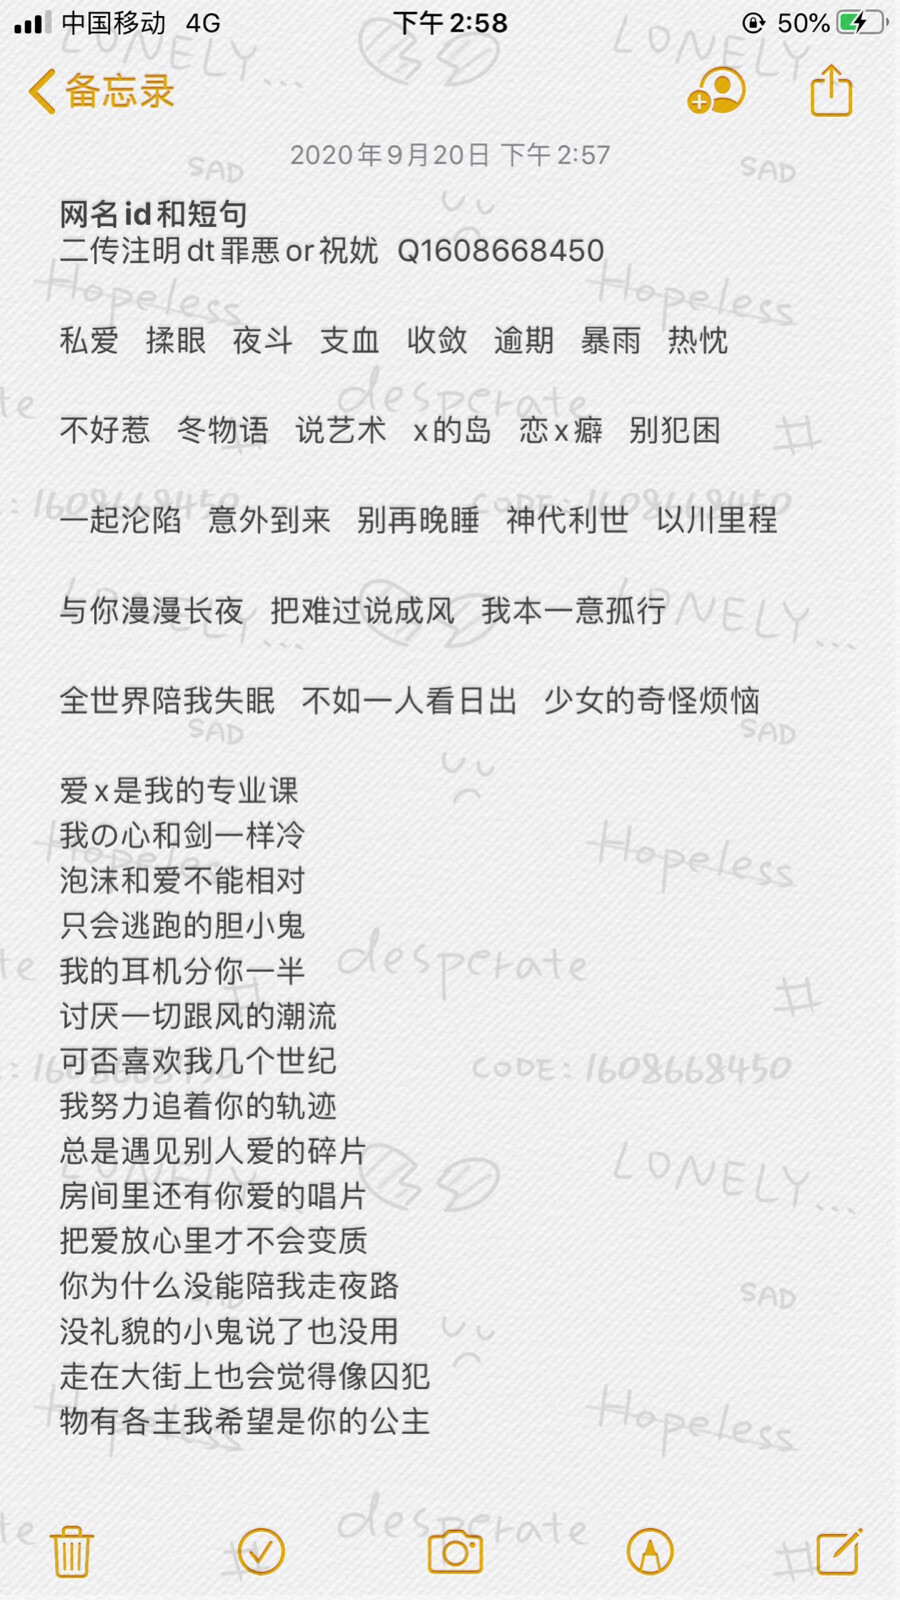 中国移动 4G 下午2:58 50%
备忘录
2020年9月20日 下午2:57
网名id和短句
二传注明dt罪悪or祝妩 Q1608668450
私爱 揉眼 夜斗 支血 收敛 逾期 暴雨 热忱
不好惹 冬物语 说艺术 x的岛 恋x癖 别犯困
一起沦陷 意外到来 别再晚睡 神代利世 以川里程
与你漫漫长夜 把难过说成风 我本一意孤行
全世界陪我失眠 不如一人看日出 少女的奇怪烦恼
爱x是我的专业课
我の心和剑一样冷
泡沫和爱不能相对
只会逃跑的胆小鬼
我的耳机分你一半
讨厌一切跟风的潮流
可否喜欢我几个世纪
我努力追着你的轨迹
总是遇见别人爱的碎片
房间里还有你爱的唱片
把爱放心里才不会变质
你为什么没能陪我走夜路
没礼貌的小鬼说了也没用
走在大街上也会觉得像囚犯
物有各主我希望是你的公主
LONELY...
SAD
Hopeless
desperate
#
CODE: 1608668450